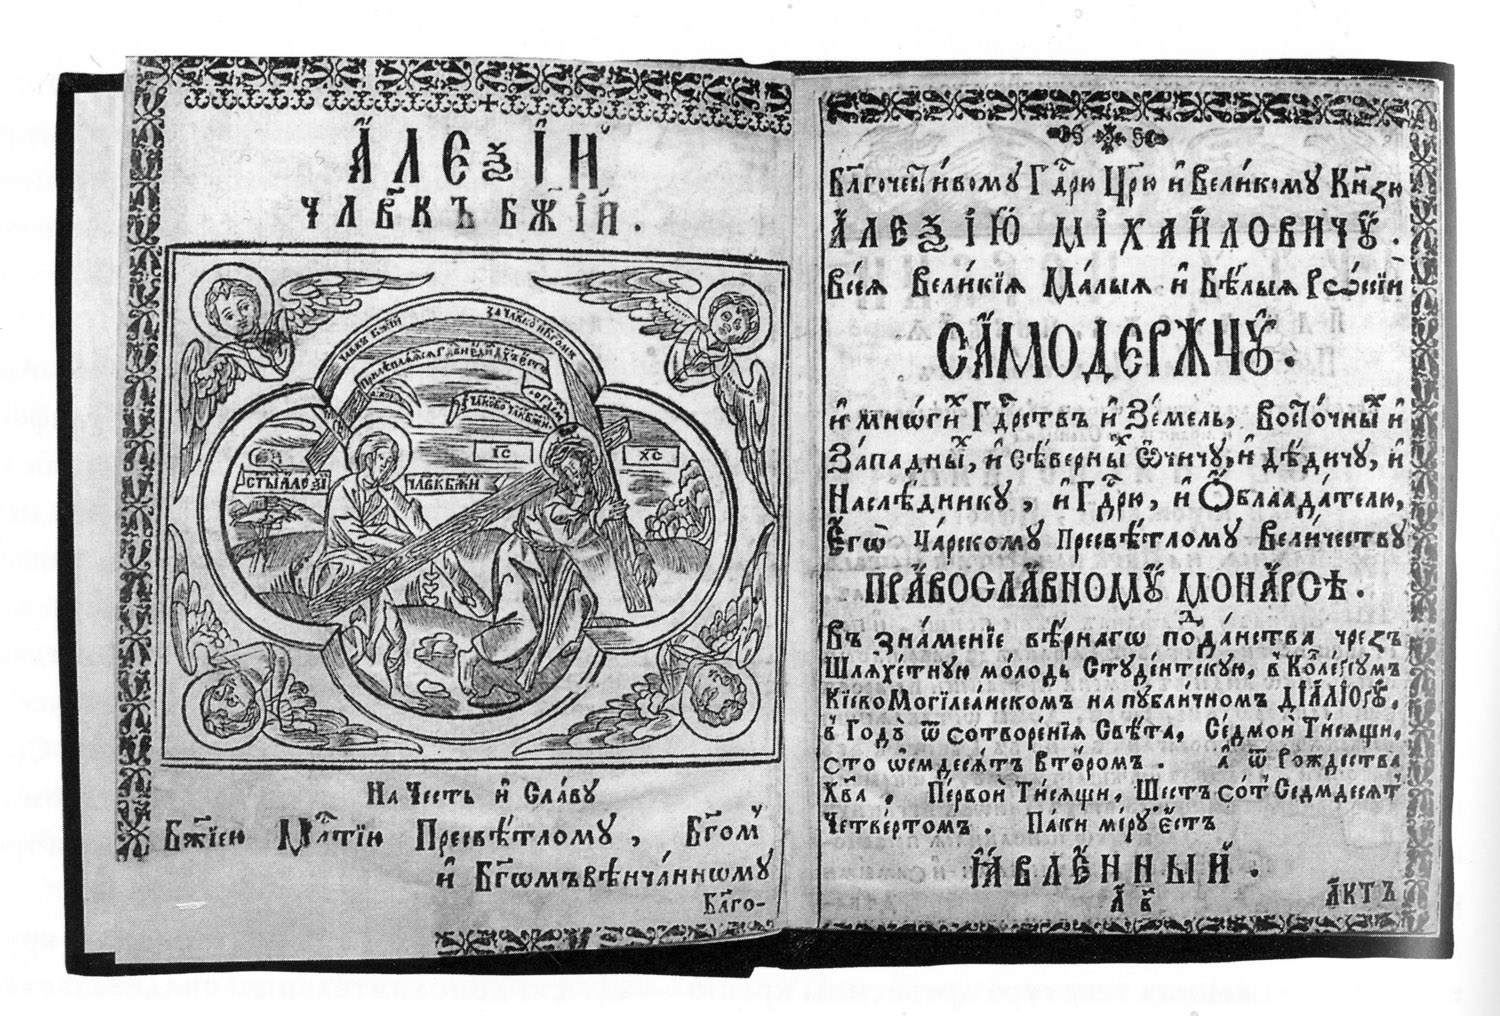 АЛЕѮІЙ
ЧЛ҃ВКЪ БЖ҃ІЙ.
ЧЛ҃ВКЪ БЖ҃ІЙ
СТЫЙ АЛЕѮІЙ
ЧЛ҃ВКЪ БЖ҃ІЙ
ІС
ХС
На Честь и҆ Славу
Бж҃іею Мл҃тїю Пресвѣ́тлому, Бг҃ому
и҆ Бг҃ѡмъвѣнча́нному
Бл҃го-
Бл҃гочести́вому Гд҃рю Цр҃ю и҆ Вели́кому Кн҃зю
АЛЕѮІЮ МІХАЙЛОВИЧꙊ.
Всея̀ Вели́кїя Ма́лыя и҆ Бѣ́лыя Рѡссїи
САМОДЕРЖЦꙊ.
и҆ мнѡ́гих Гд҃рствъ и҆ Зе́мель, Восто́чных и҆
За́падных, и҆ Сѣ́верных Ѿчичу, и҆ Дѣ́дичу, и҆
Наслѣ́днику, и҆ Гд҃рю, и҆ Ѻблаада́телю,
Е҆гѡ̀ Ца́рскому Пресвѣ́тлому Вели́честву
ПРАВОСЛАВНОМꙊ МОНАРСѢ.
Въ зна́менїе вѣ́рнагѡ пода́нства чрезъ
Шляхе́тную мо́лодь Студе́нтскую, в Коле́гїумъ
Кїево Могілеа́нскомъ на публи́чномъ ДІАЛІОГꙊ,
в Годъ ѿ сотворе́нїя Свѣ́та, Се́дмой Ти́сящи,
сто ѡсмдеся́тъ Второмъ. а ѿ Рождества
Хв҃а, Пе́рвой Ти́сящи, Шестъ со́т Седмдеся́т
Четве́ртомъ. Паки ме́ру є҆стъ
ꙖВЛЕННЫЙ.
А в҃
АКТЪ